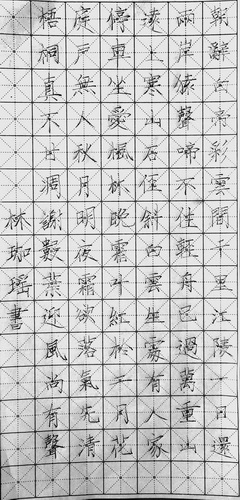 朝辭白帝彩雲間千里江陵一日還
兩岸猿聲啼不住輕舟已過萬重山
遠上寒山石徑斜白雲生處有人家
停車坐愛楓林晚霜叶紅於二月花
庭戶無人秋月明夜霜欲落氣先清
梧桐真不甘凋謝數葉迎風尚有聲
林珈瑤書